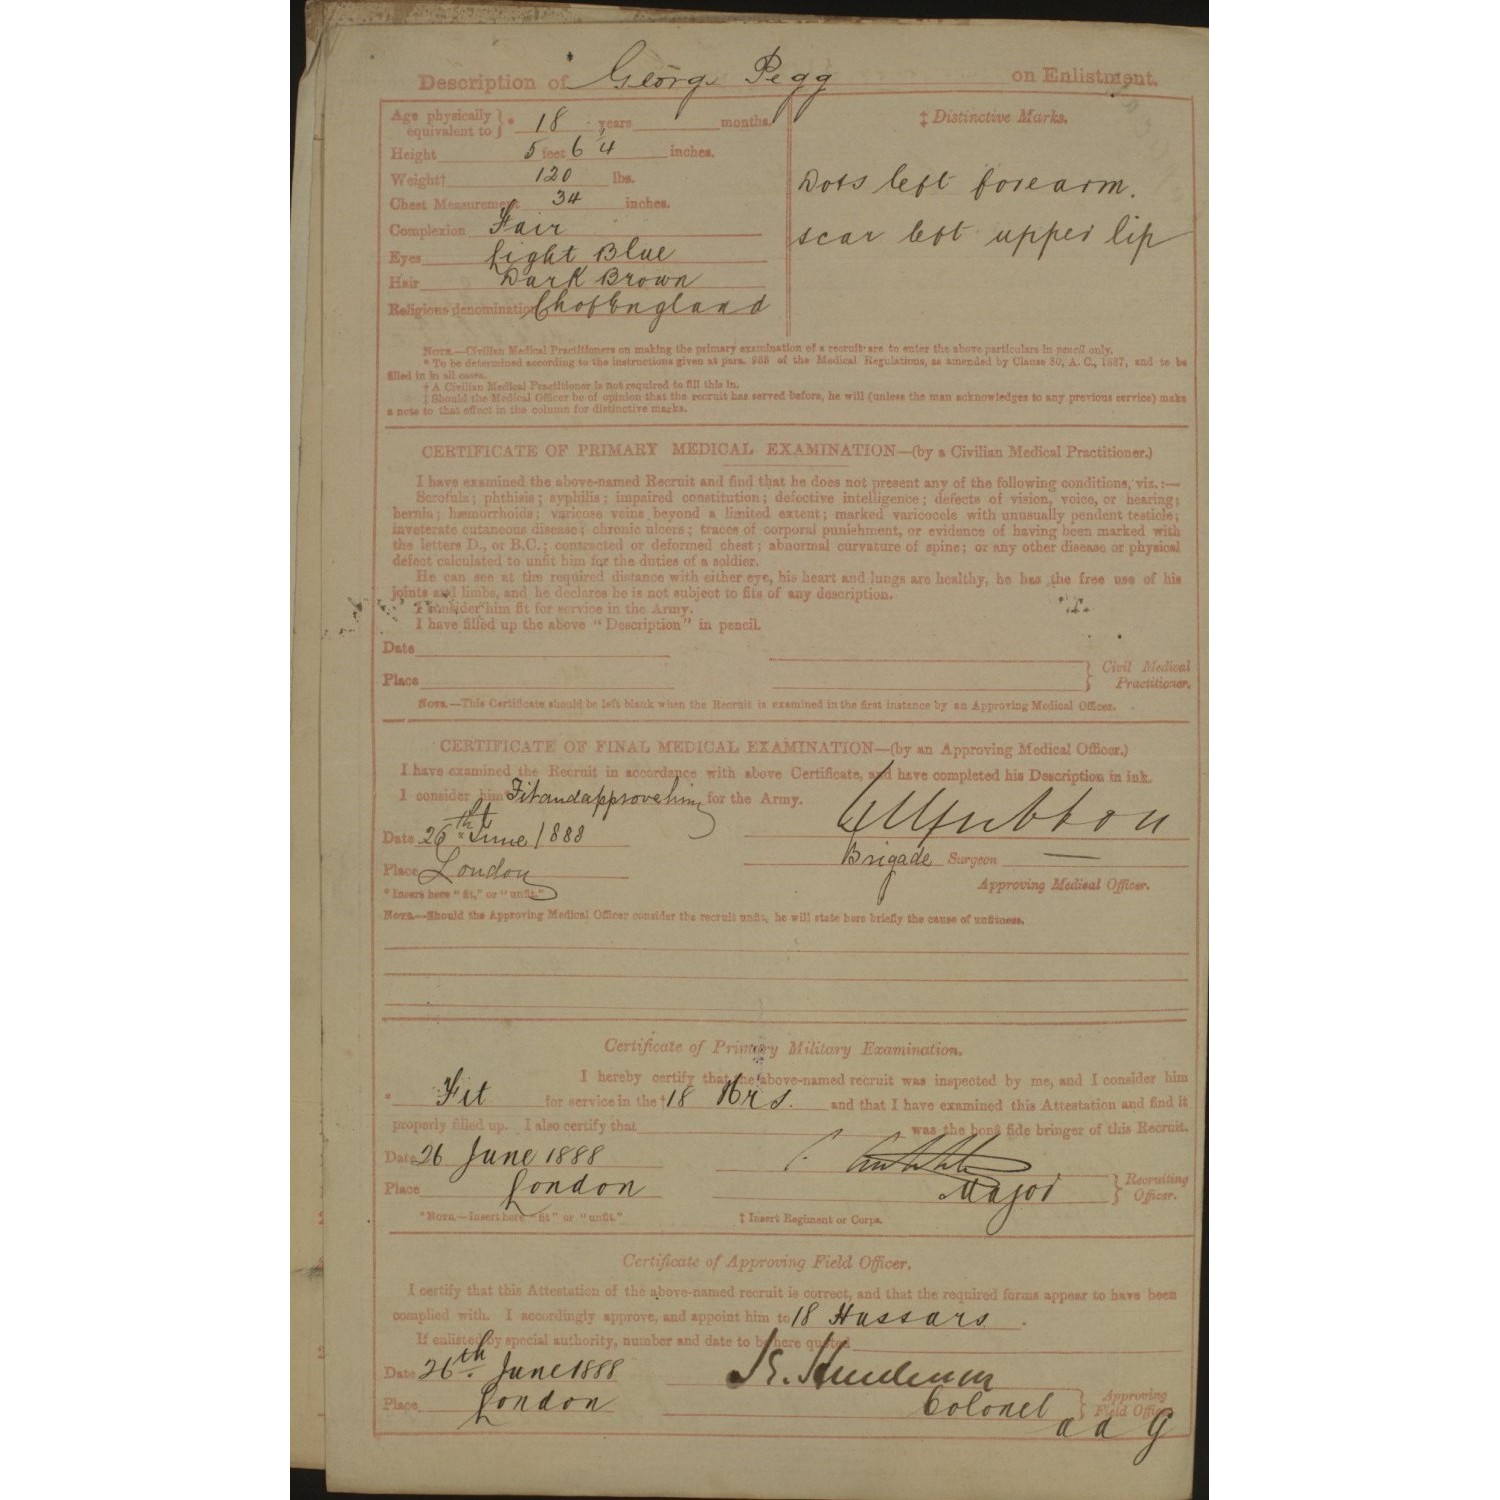 Description of George Pegg on Enlistment.
Age physically equivalent to } * 18 years months.
Height 5 feet 6 4 inches.
Weight† 120 lbs.
Chest Measurement 34 inches.
Complexion Fair
Eyes Light Blue
Hair Dark Brown
Religious denomination Ch of England
‡ Distinctive Marks.
Dots left forearm.
scar left upper lip
NOTE.—Civilian Medical Practitioners on making the primary examination of a recruit are to enter the above particulars in pencil only.
* To be determined according to the instructions given at para. 988 of the Medical Regulations, as amended by Clause 80, A. C., 1887, and to be
filled in in all cases.
† A Civilian Medical Practitioner is not required to fill this in.
‡ Should the Medical Officer be of opinion that the recruit has served before, he will (unless the man acknowledges to any previous service) make
a note to that effect in the column for distinctive marks.
CERTIFICATE OF PRIMARY MEDICAL EXAMINATION—(by a Civilian Medical Practitioner.)
I have examined the above-named Recruit and find that he does not present any of the following conditions, viz.:—
Scrofula; phthisis; syphilis; impaired constitution; defective intelligence; defects of vision, voice, or hearing;
hernia; hæmorrhoids; varicose veins beyond a limited extent; marked varicocele with unusually pendent testicle;
inveterate cutaneous disease; chronic ulcers; traces of corporal punishment, or evidence of having been marked with
the letters D., or B.C.; contracted or deformed chest; abnormal curvature of spine; or any other disease or physical
defect calculated to unfit him for the duties of a soldier.
He can see at the required distance with either eye, his heart and lungs are healthy, he has the free use of his
joints and limbs, and he declares he is not subject to fits of any description.
I consider him fit for service in the Army.
I have filled up the above "Description" in pencil.
Date
Place
} Civil Medical Practitioner.
NOTE.—This Certificate should be left blank when the Recruit is examined in the first instance by an Approving Medical Officer.
CERTIFICATE OF FINAL MEDICAL EXAMINATION—(by an Approving Medical Officer.)
I have examined the Recruit in accordance with above Certificate, and have completed his Description in ink.
I consider him* Fit and approve him for the Army.
Date 26th June 1888
Brigade Surgeon
Place London
Approving Medical Officer.
* Insert here "fit," or "unfit."
NOTE.—Should the Approving Medical Officer consider the recruit unfit, he will state here briefly the cause of unfitness.
Certificate of Primary Military Examination.
I hereby certify that the above-named recruit was inspected by me, and I consider him
* Fit for service in the † 18 Hrs. and that I have examined this Attestation and find it
properly filled up. I also certify that was the bonâ fide bringer of this Recruit.
Date 26 June 1888
Place London
Major } Recruiting Officer.
*NOTE.—Insert here "fit" or "unfit."
† Insert Regiment or Corps.
Certificate of Approving Field Officer.
I certify that this Attestation of the above-named recruit is correct, and that the required forms appear to have been
complied with. I accordingly approve, and appoint him to 18 Hussars.
If enlisted by special authority, number and date to be here quoted
Date 26th. June 1888
Place London
Colonel } Approving Field Officer.
a a G